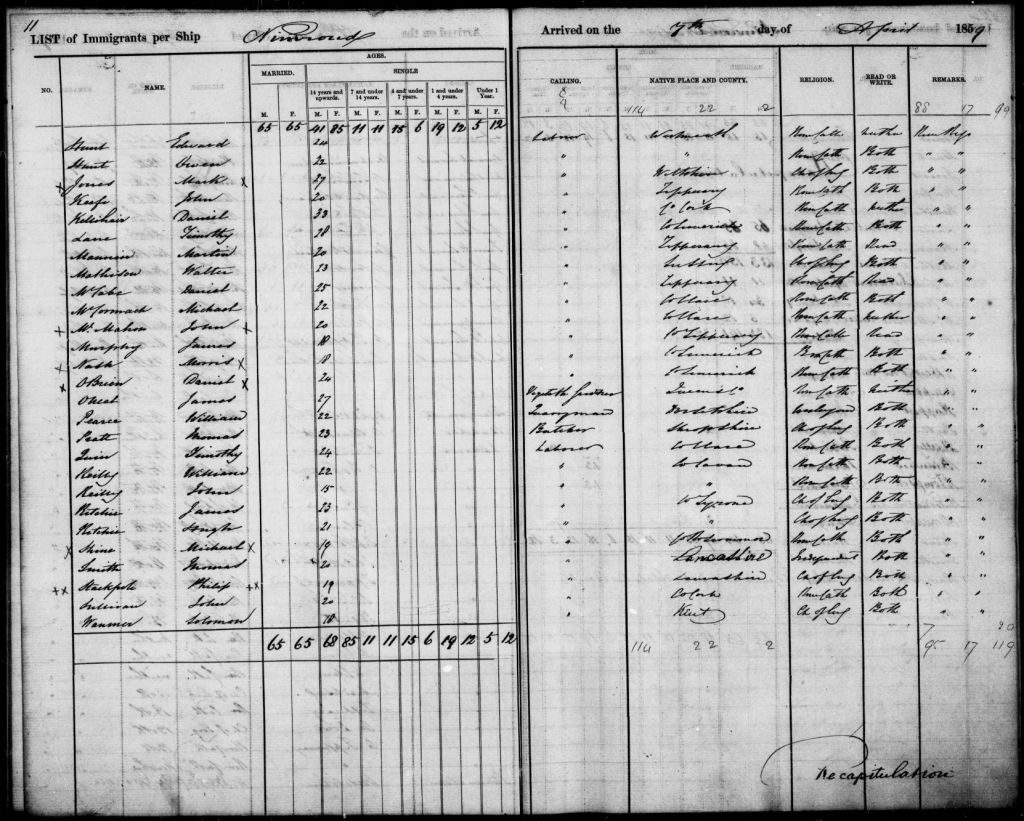 11
LIST of Immigrants per Ship Nimroud Arrived on the 7th day of April 1859
NO. NAME. AGES. CALLING. NATIVE PLACE AND COUNTY. RELIGION. READ OR WRITE. REMARKS.
MARRIED. SINGLE
14 years and upwards. 7 and under 14 years. 4 and under 7 years. 1 and under 4 years. Under 1 Year.
M. F. M. F. M. F. M. F. M. F. M. F.
114 22 2 88 17 99
65 65 41 85 11 11 15 6 19 12 5 12
Hunt Edward 24 Labour Neither
Hunt Owen 22 " " Rom Cath Both " "
x Jones Mark x 27 " Wiltshire Ch of Eng Both " "
Keefe John 20 " Tipperary Rom Cath Both " "
Daniel 33 " Co Cork Rom Cath Neither " "
Lane Timothy 28 " Co Limerick Rom Cath Both " "
Martin 20 " Tipperary Rom Cath Read " "
Mathieson Walter 23 " Ch of Eng Both " "
McCabe Daniel 25 " Tipperary Rom Cath Read " "
McCormack Michael 22 " Co Clare Rom Cath Both " "
x McMahon John x 20 " Co Clare Rom Cath Neither " "
Murphy James 18 " Co Tipperary Rom Cath Read " "
x Nash Morris x 18 " Co Limerick Rom Cath Both " "
x OBrien Daniel x 24 " Co Limerick Rom Cath Both " "
James 27 Rom Cath Neither " "
Pearce William 22 Quarryman Dorsetshire Wesleyan Both " "
Thomas 23 Butcher Shropshire Ch of Eng Both " "
Quin Timothy 24 Labourer Co Clare Rom Cath Both " "
Reilly William 22 " Co Cavan Rom Cath Both " "
Reilly John 15 " " Rom Cath Both " "
Ritchie James 23 " Co Tyrone Ch of Eng Both " "
Ritchie Hugh 21 " " Ch of Eng Both " "
x Shine Michael x 19 " Co Roscommon Rom Cath Both " "
Smith Thomas 20 " Lancashire Independent Both " "
x x Stackpole Philip x x 19 " Lancashire Ch of Eng Both " "
Sullivan John 20 " Co Cork Rom Cath Both " "
Wanmer Solomon 18 " Kent Ch of Eng Both " "
7 20
65 65 68 85 11 11 15 6 19 12 5 12 114 22 2 95 17 119
Recapitulation